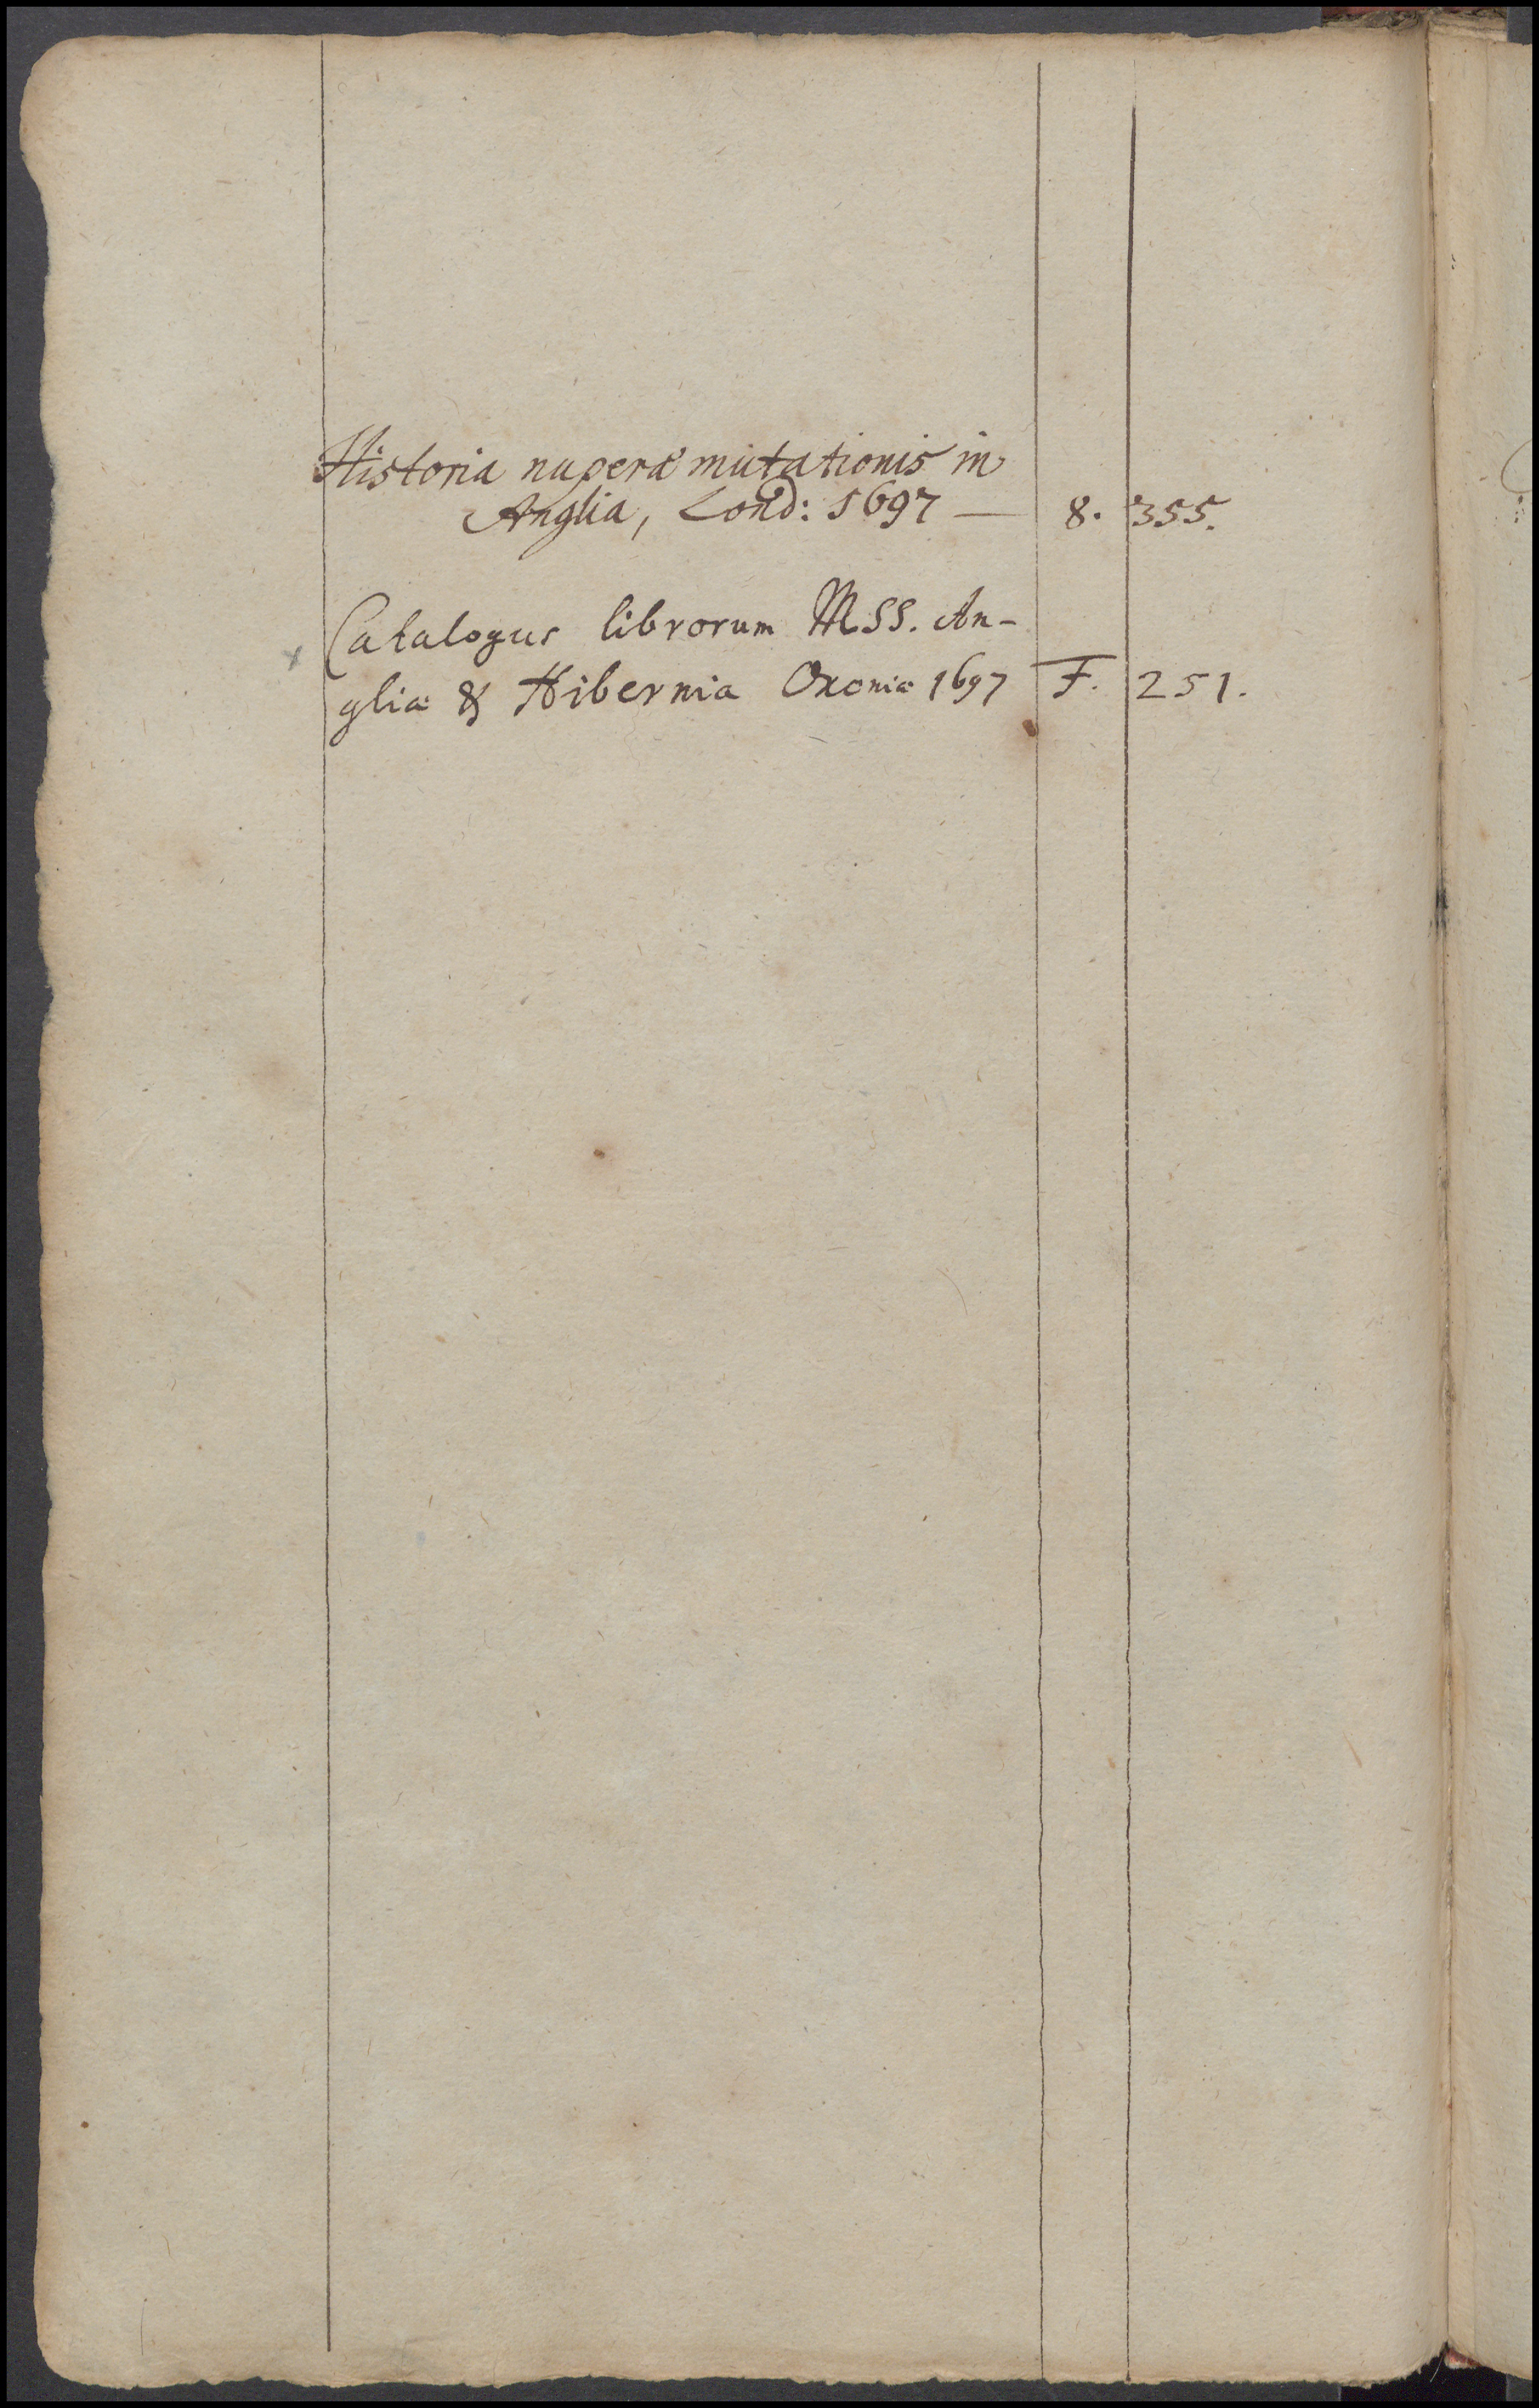 Historia nuperæ mutationis in
Anglia, Lond: 1697 — 8. 355.
x Catalogus librorum MSS. An-
gliæ & Hibernia Oxoniæ 1697 F. 251.